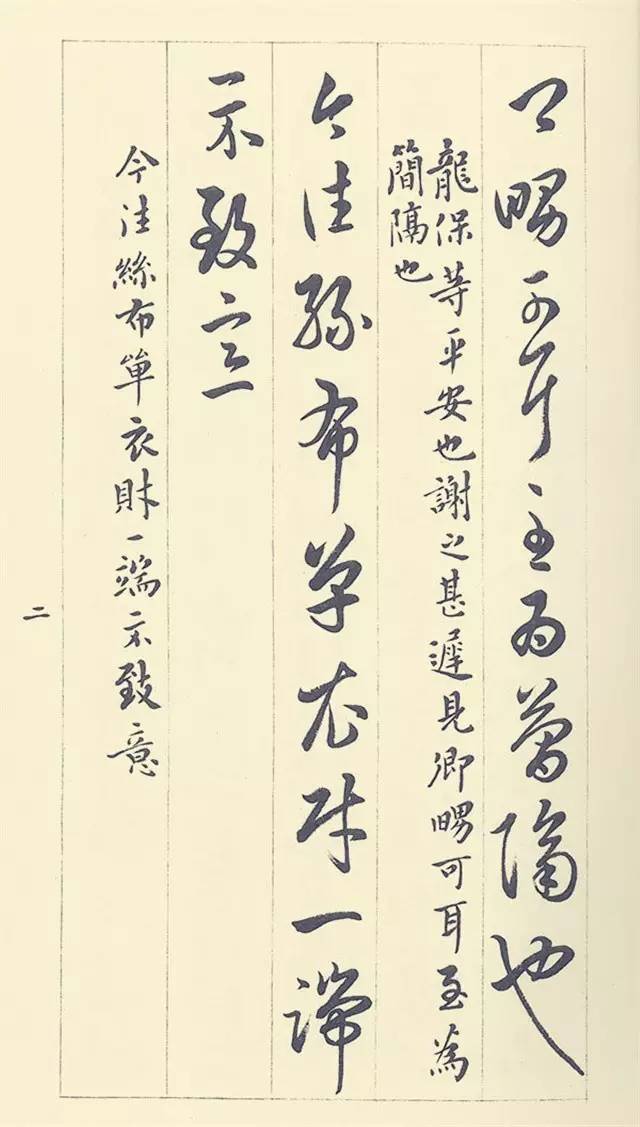 卿舅可耳至為簡隔也
龍保等平安也謝之甚遲見卿舅可耳至為
簡隔也
今往絲布單衣財一端
示致意
今往絲布單衣財一端示致意
二